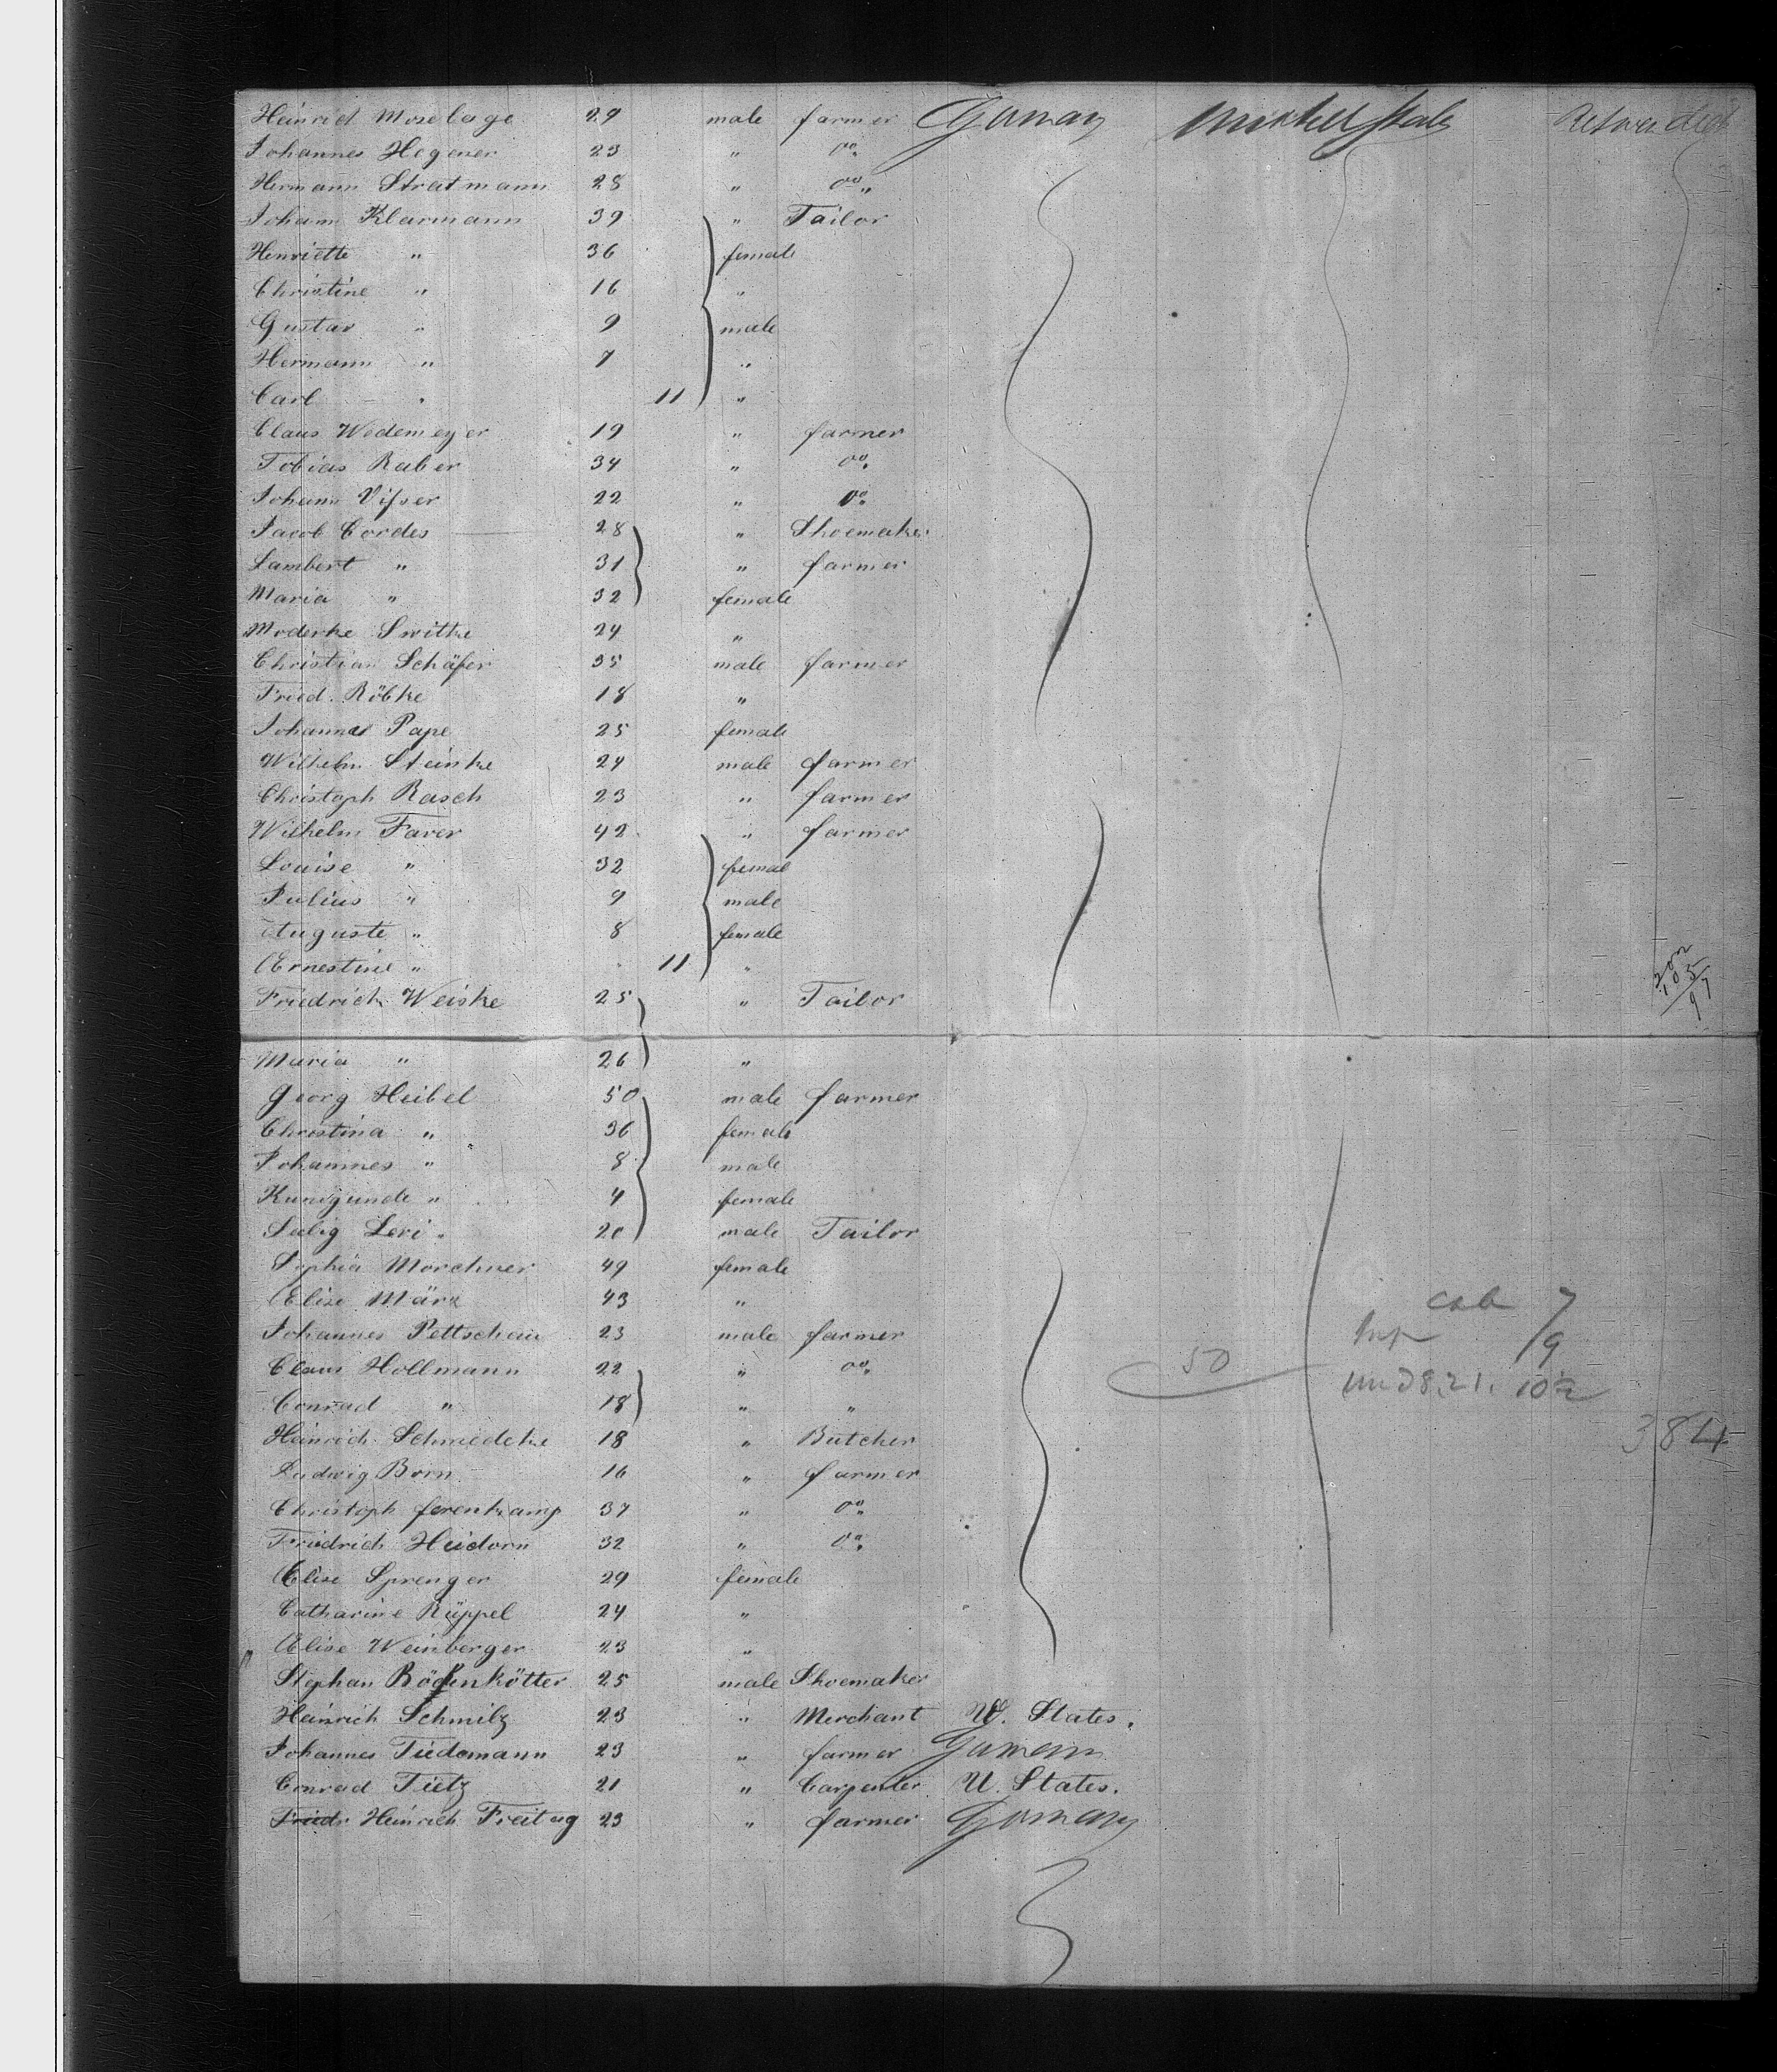 Heinrich Moselage 29 male farmer Germany United States Between deck
Johannes Hegener 23 " do
Hermann Stratmann 28 " do "
Johann Klarmann 39 " Tailor
Henriette " 36 female
Christine " 16 "
Gustav " 9 male
Hermann " 7 "
Carl " 11 "
Claus Wedemeyer 19 " farmer
Tobias Raber 34 " do
Johann Visser 22 " do
Jacob Cordes 28 " Shoemaker
Lambert " 31 " farmer
Maria " 32 female
Moderke Switke 24 "
Christian Schäfer 35 male farmer
Fried. Röbke 18 "
Johanna Pape 25 female
Wilhelm Steinke 24 male farmer
Christoph Rasch 23 " farmer
Wilhelm Faver 42 " farmer
Louise " 32 female
Julius " 9 male
Auguste " 8 female
Ernestine " 11 "
202
105
97
Friedrich Weiske 25 " Tailor
Maria " 26 "
Georg Heibel 50 male farmer
Christina " 36 female
Johannes " 8 male
Kunigunde " 4 female
Seelig Levi " 20 male Tailor
Sophia Morchner 49 female
Elise März 43 "
Johannes Pettschau 23 male farmer
Claus Hollmann 22 " do
Conrad " 18 " "
Heinrich Schmedeke 18 " Butcher
Ludwig Born 16 " farmer
Christoph ferenkamp 37 " do
Friedrich Heidorn 32 " do
Elise Sprenger 29 female
Catharine Rüppel 24 "
Elise Weinberger 23 "
Stephan Bödenkötter 25 male Shoemaker
Heinrich Schmilz 23 " Merchant U. States.
Johannes Tiedemann 23 " farmer Germany
Conrad Tietz 21 " Carpenter U. States.
Friedr Heinrich Freitag 23 " farmer Germany
cab 7
9
50
384